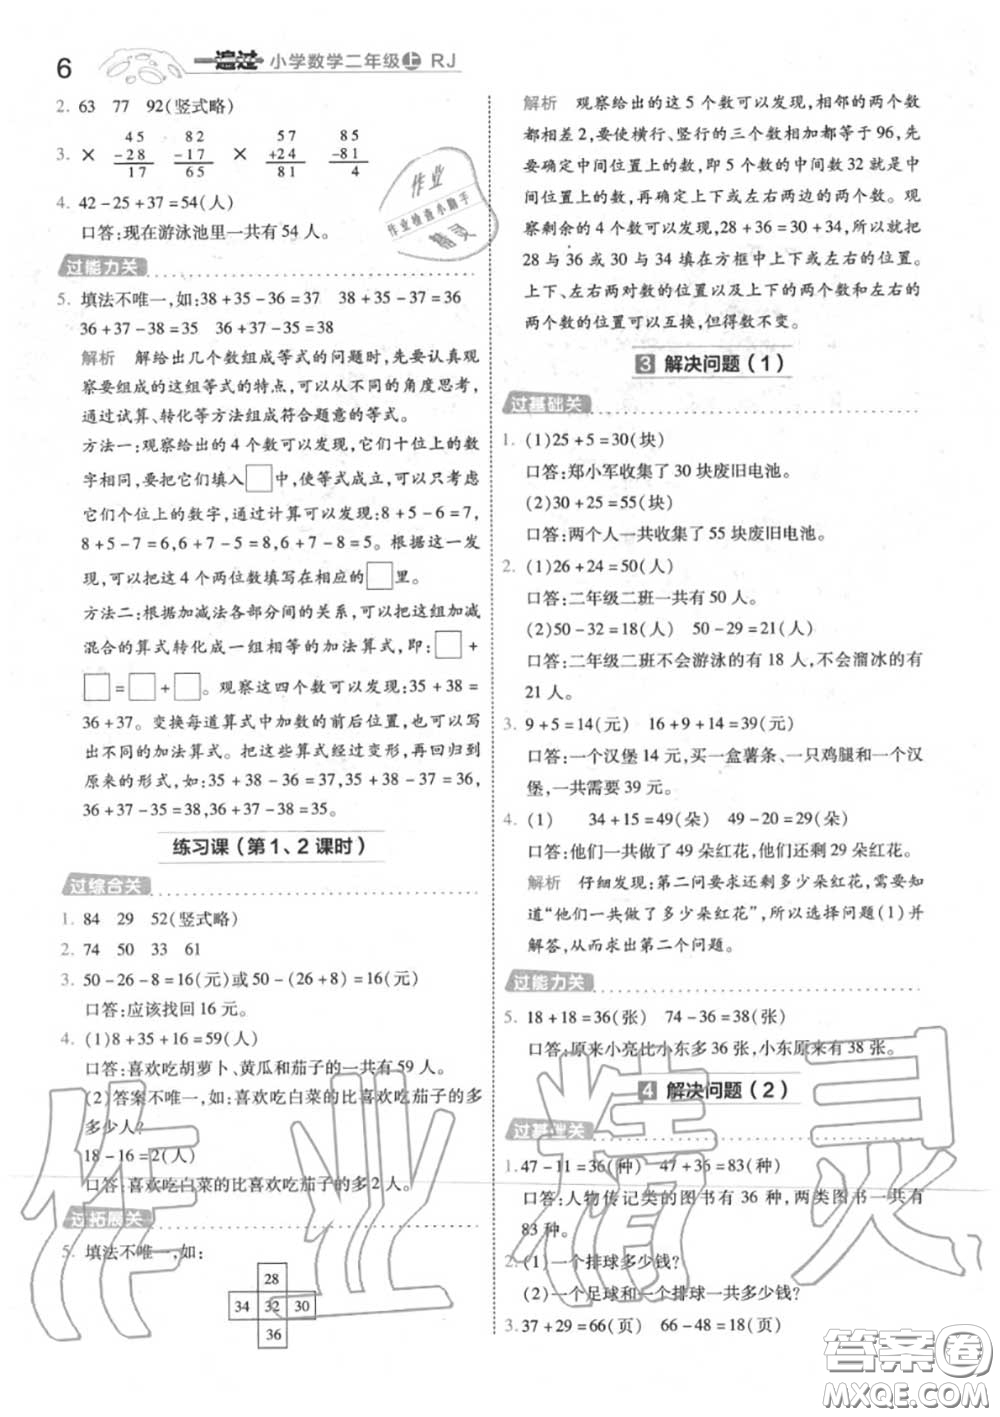 6
一遍过 小学数学二年级上 RJ
2. 63 77 92(竖式略)
3. ×
45
-28
17
82
-17
65
×
57
+24
81
85
-81
4
4. 42-25+37=54(人)
口答:现在游泳池里一共有 54 人。
过能力关
5. 填法不唯一,如:38+35-36=37 38+35-37=36
36+37-38=35 36+37-35=38
解析 解给出几个数组成等式的问题时,先要认真观
察要组成的这组等式的特点,可以从不同的角度思考,
通过试算、转化等方法组成符合题意的等式。
方法一:观察给出的 4 个数可以发现,它们十位上的数
字相同,要把它们填入□中,使等式成立,可以只考虑
它们个位上的数字,通过计算可以发现:8+5-6=7,
8+5-7=6,6+7-5=8,6+7-8=5。根据这一发
现,可以把这 4 个两位数填写在相应的□里。
方法二:根据加减法各部分间的关系,可以把这组加减
混合的算式转化成一组相等的加法算式,即:□+
□=□+□。观察这四个数可以发现:35+38=
36+37。变换每道算式中加数的前后位置,也可以写
出不同的加法算式。把这些算式经过变形,再回归到
原来的形式,如:35+38-36=37,35+38-37=36,
36+37-35=38,36+37-38=35。
练习课(第 1、2 课时)
过综合关
1. 84 29 52(竖式略)
2. 74 50 33 61
3. 50-26-8=16(元)或 50-(26+8)=16(元)
口答:应该找回 16 元。
4. (1)8+35+16=59(人)
口答:喜欢吃胡萝卜、黄瓜和茄子的一共有 59 人。
(2)答案不唯一,如:喜欢吃白菜的比喜欢吃茄子的多
多少人?
18-16=2(人)
口答:喜欢吃白菜的比喜欢吃茄子的多 2 人。
过拓展关
5. 填法不唯一,如:
28
34 32 30
36
解析 观察给出的这 5 个数可以发现,相邻的两个数
都相差 2,要使横行、竖行的三个数相加都等于 96,先
要确定中间位置上的数,即 5 个数的中间数 32 就是中
间位置上的数,再确定上、下或左右两边的两个数。观
察剩余的 4 个数可以发现,28+36=30+34,所以将
28 与 36 或 30 与 34 填在方框中上下或左右的位置。
上下、左右两对数的位置以及上下的两个数和左右的
两个数的位置可以互换,但得数不变。
3 解决问题(1)
过基础关
1. (1)25+5=30(块)
口答:郑小军收集了 30 块废旧电池。
(2)30+25=55(块)
口答:两个人一共收集了 55 块废旧电池。
2. (1)26+24=50(人)
口答:二年级二班一共有 50 人。
(2)50-32=18(人) 50-29=21(人)
口答:二年级二班不会游泳的有 18 人,不会溜冰的有
21 人。
3. 9+5=14(元) 16+9+14=39(元)
口答:一个汉堡 14 元,买一盒薯条、一只鸡腿和一个汉
堡,一共需要 39 元。
4. (1) 34+15=49(朵) 49-20=29(朵)
口答:他们一共做了 49 朵红花,他们还剩 29 朵红花。
解析 仔细发现:第二问要求还剩多少朵红花,需要知
道“他们一共做了多少朵红花”,所以选择问题(1)并
解答,从而求出第二个问题。
过能力关
5. 18+18=36(张) 74-36=38(张)
口答:原来小亮比小东多 36 张,小东原来有 38 张。
4 解决问题(2)
过基础关
1. 47-11=36(种) 47+36=83(种)
口答:人物传记类的图书有 36 种,两类图书一共有
83 种。
2. (1)一个排球多少钱?
(2)一个足球和一个排球一共多少钱?
3. 37+29=66(页) 66-48=18(页)
作业
作业检查小助手
精灵
作业精灵
答案圈
MXQE.COM